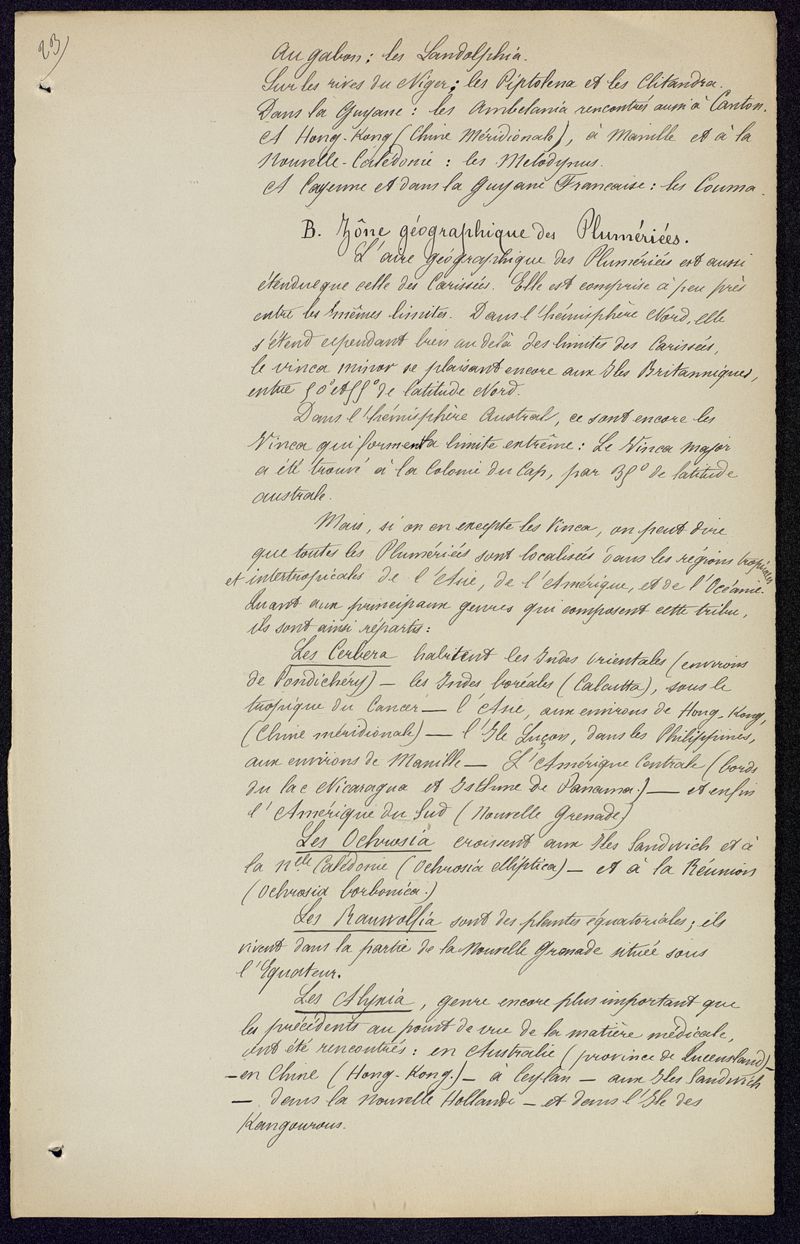 23)
Au gabon : les Landolphia.
Sur les rives du Niger : les Piptolena et les Clitandra.
Dans la Guyane : les Ambelania rencontrés aussi à Canton.
et Hong-Kong (Chine Méridionale), à Manille et à la
Nouvelle-Calédonie : les Melodynus.
A Cayenne et dans la Guyane Française : les Couma.
B. Zône géographique des Plumériées.
L'aire géographique des Plumériées est aussi
étendue que celle des Carissées. Elle est comprise à peu près
entre les mêmes limites. Dans l'hémisphère Nord, elle
s'étend cependant bien au delà des limites des Carissées,
le vinca minor se plaisant encore aux Iles Britanniques,
entre 50° et 55° de latitude Nord.
Dans l'hémisphère Austral, ce sont encore les
Vinca qui forment la limite extrême : Le Vinca major
a été trouvé à la Colonie du Cap, par 35° de latitude
australe.
Mais, si on en excepte les Vinca, on peut dire
que toutes les Plumériées sont localisées dans les régions tropicales
et intertropicales de l'Asie, de l'Amérique, et de l'Océanie.
Quant aux principaux genres qui composent cette tribu,
ils sont ainsi répartis :
Les Cerbera habitent les Indes orientales (environs
de Pondichéry) — les Indes boréales (Calcutta), sous le
tropique du Cancer — l'Asie, aux environs de Hong-Kong,
(Chine méridionale) — l'Ile Luçon, dans les Philippines,
aux environs de Manille — L'Amérique Centrale (bords
du lac Nicaragua et Isthme de Panama.) — et enfin
l'Amérique du Sud (Nouvelle Grenade)
Les Ochrosia croissent aux Iles Sandwich et à
la Nlle Calédonie (Ochrosia elliptica) — et à la Réunion
(Ochrosia borbonica.)
Les Rauwolfia sont des plantes équatoriales ; ils
vivent dans la partie de la Nouvelle Grenade située sous
l'Equateur.
Les Alyxia, genre encore plus important que
les précédents au point de vue de la matière médicale,
ont été rencontrés : en Australie (province de Queensland) —
— en Chine (Hong-Kong.) — à Ceylan — aux Iles Sandwich
— dans la Nouvelle Hollande — et dans l'Ile des
Kangourous.